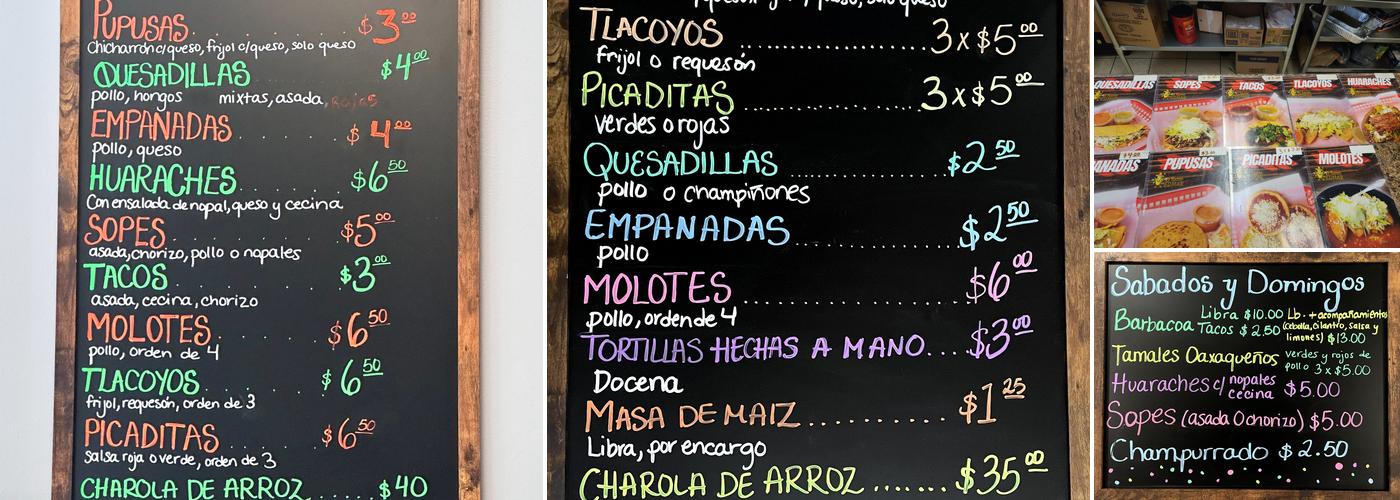 PUPUSAS $3.00
Chicharrón c/queso, frijol c/queso, solo queso
QUESADILLAS $4.00
pollo, hongos mixtas, asada, rojas
EMPAÑADAS $4.00
pollo, queso
HUARACHES $6.50
Con ensalada de nopal, queso y cecina
SOPES $5.00
asada, chorizo, pollo o nopales
TACOS $3.00
asada, cecina, chorizo
MOLOTES $6.50
pollo, orden de 4
TLACOYOS $6.50
frijol, requesón, orden de 3
PICADITAS $6.50
salsa roja o verde, orden de 3
CHAROLA DE ARROZ $40
solo queso
TLACOYOS 3x$5.00
frijol o requesón
PICADITAS 3x$5.00
verdes o rojas
QUESADILLAS $2.50
pollo o champiñones
EMPANADAS $2.50
pollo
MOLOTES $6.00
pollo, orden de 4
TORTILLAS HECHAS A MANO $3.00
Docena
MASA DE MAIZ $1.25
Libra, por encargo
CHAROLA DE ARROZ $35.00
QUESADILLAS SOPES TACOS TLACOYOS HUARACHES
ANADAS PUPUSAS PICADITAS MOLOTES
Sabados y Domingos
Barbacoa Libra $10.00 Lb. + acompañamientos
Tacos $2.50 (cebolla, cilantro, salsa y
limones) $13.00
Tamales Oaxaqueños verdes y rojos de
pollo 3x$5.00
Huaraches c/ nopales
cecina $5.00
Sopes (asada O chorizo) $5.00
Champurrado $2.50